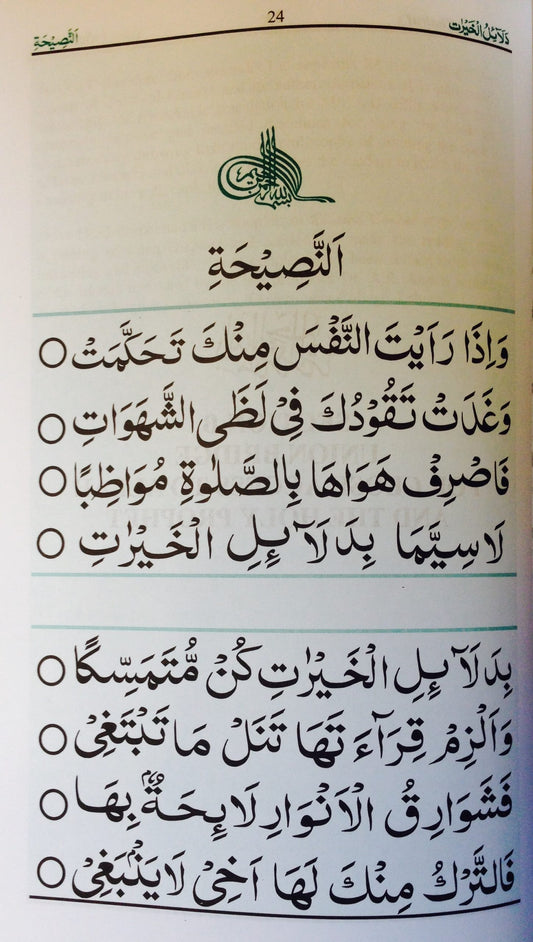 دَلَآئِلُ الْخَيْرَات 24 اَلنَّصِيْحَةِ
بسم الله الرحمن الرحيم
اَلنَّصِيْحَةِ
وَاِذَا رَاَيْتَ النَّفْسَ مِنْكَ تَحَكَّمَتْ ○
وَغَدَتْ تَقُوْدُكَ فِيْ لَظَى الشَّهَوَاتِ ○
فَاصْرِفْ هَوَاهَا بِالصَّلٰوةِ مُوَاظِبًا ○
لَاسِيَّمَا بِدَلَآئِلِ الْخَيْرٰتِ ○
بِدَلَآئِلِ الْخَيْرٰتِ كُنْ مُّتَمَسِّكًا ○
وَالْزِمْ قِرَآءَتَهَا تَنَلْ مَا تَبْتَغِيْ ○
فَشَوَارِقُ الْاَنْوَارِ لَائِحَةٌۢ بِهَا ○
فَالتَّرْكُ مِنْكَ لَهَا اَخِيْ لَا يَنْۢبَغِيْ ○